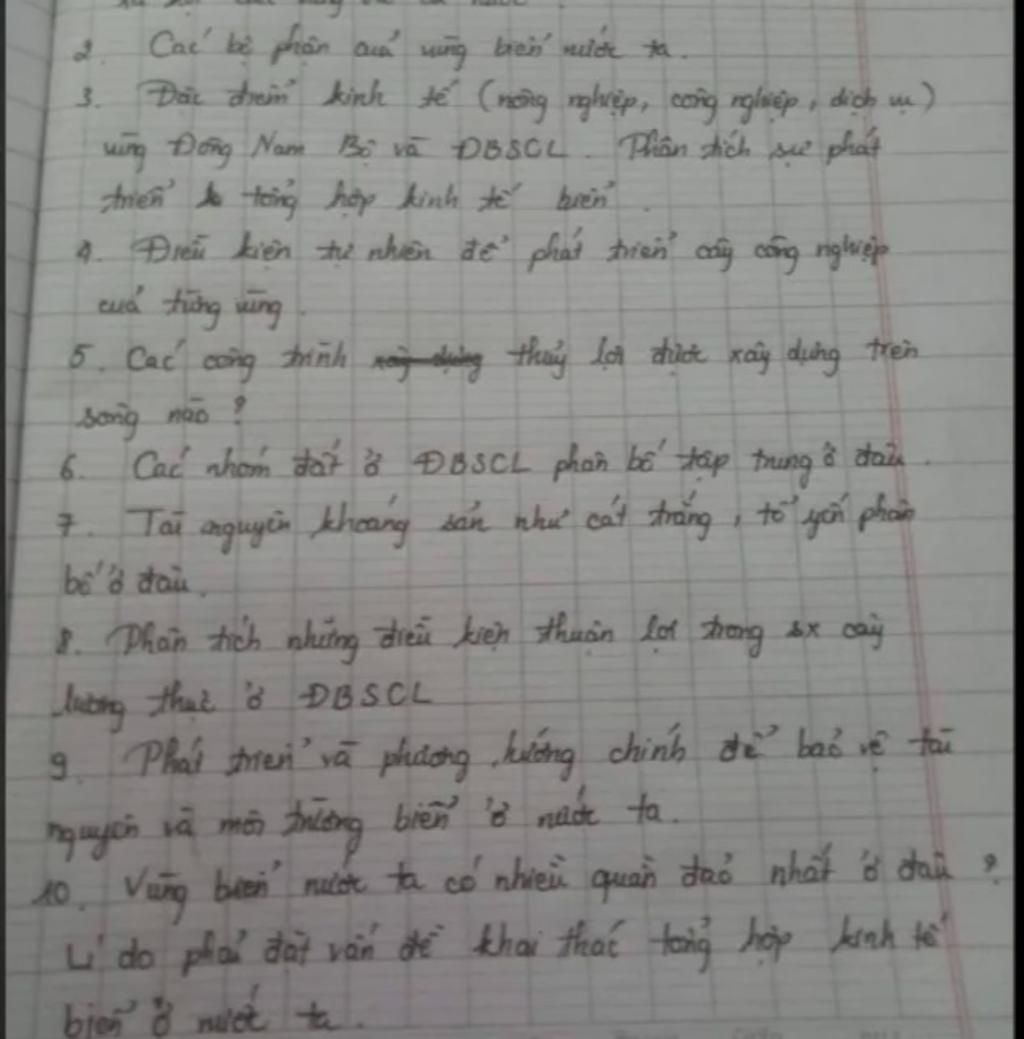 2. Các bộ phận của vùng biển nước ta.
3. Đặc điểm kinh tế (nông nghiệp, công nghiệp, dịch vụ)
vùng Đông Nam Bộ và ĐBSCL. Phân tích sự phát
triển tổng hợp kinh tế biển.
4. Điều kiện tự nhiên để phát triển cây công nghiệp
của từng vùng.
5. Các công trình xây dựng thuỷ lợi được xây dựng trên
sông nào?
6. Các nhóm đất ở ĐBSCL phân bố tập trung ở đâu.
7. Tài nguyên khoáng sản như cát trắng, tổ yến phân
bố ở đâu.
8. Phân tích những điều kiện thuận lợi trong sx cây
lương thực ở ĐBSCL
9. Phát triển và phương hướng chính để bảo vệ tài
nguyên và môi trường biển ở nước ta.
10. Vùng biển nước ta có nhiều quần đảo nhất ở đâu?
Lí do phải đặt vấn đề khai thác tổng hợp kinh tế
biển ở nước ta.